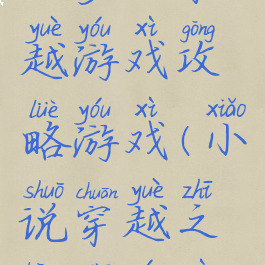 yuè yóu xì gōng
越游戏攻
lüè yóu xì xiǎo
略游戏(小
shuō chuān yuè zhī
说穿越之